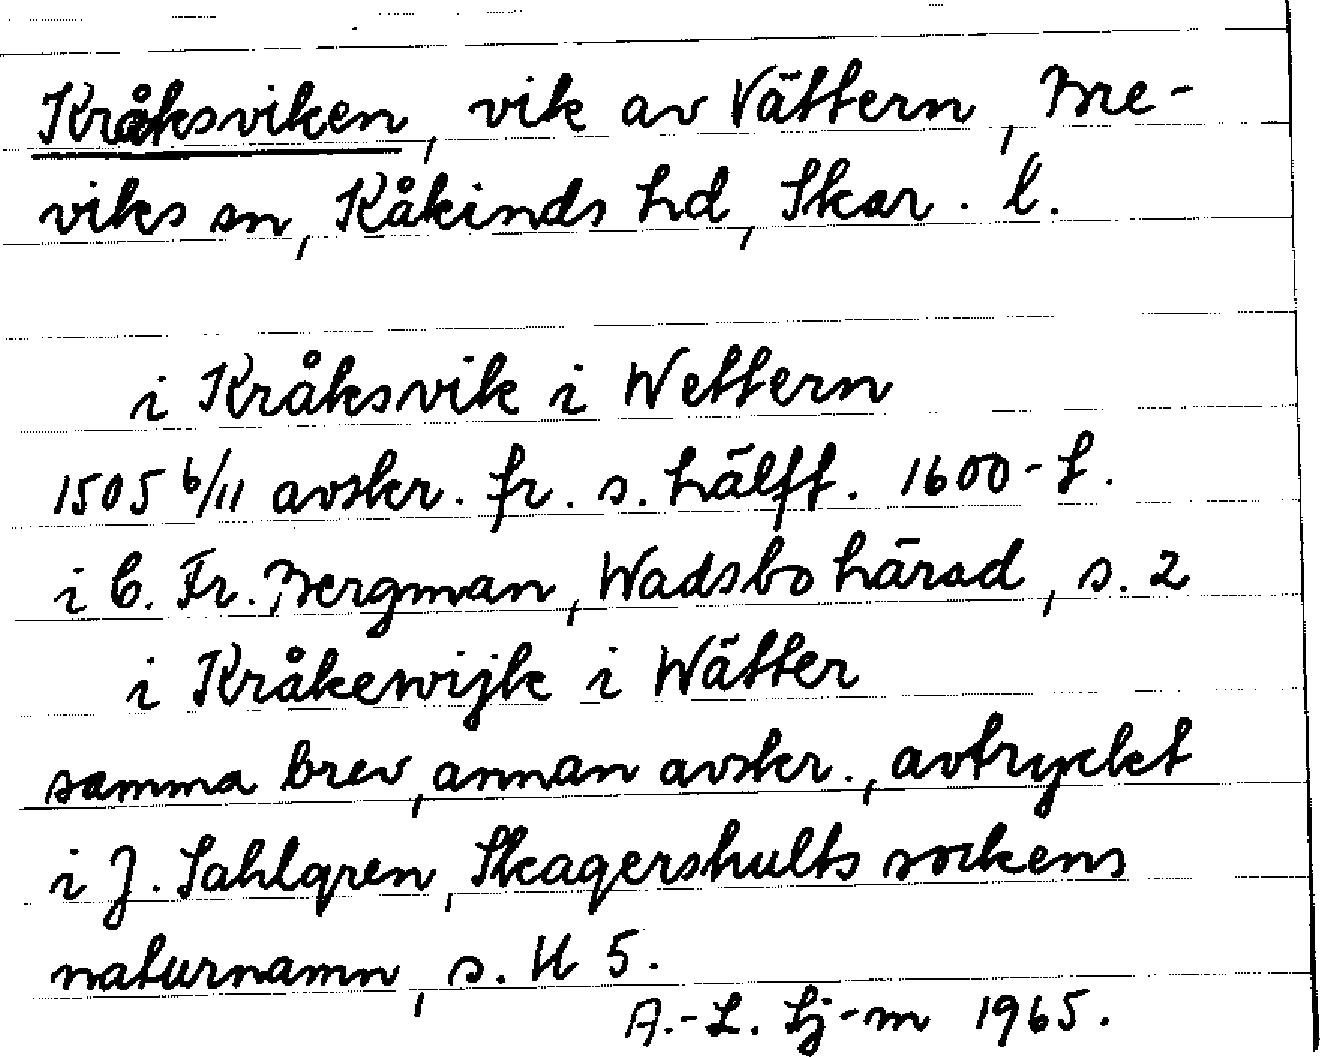 Kråksviken, vik av Vättern, Bre-
viks sn, Kåkinds hd, Skar. l.
i Kråksvik i Wettern
1505 6/11 avskr. fr. s. hälft. 1600-t.
i C. Fr. Bergman, Wadsbo härad, s. 2
i Kråkewijk i Wätter
samma brev, annan avskr., avtryckt
i J. Sahlgren, Skagershults sockens
naturnamn, s. U 5.
A.-L. Lj-m 1965.